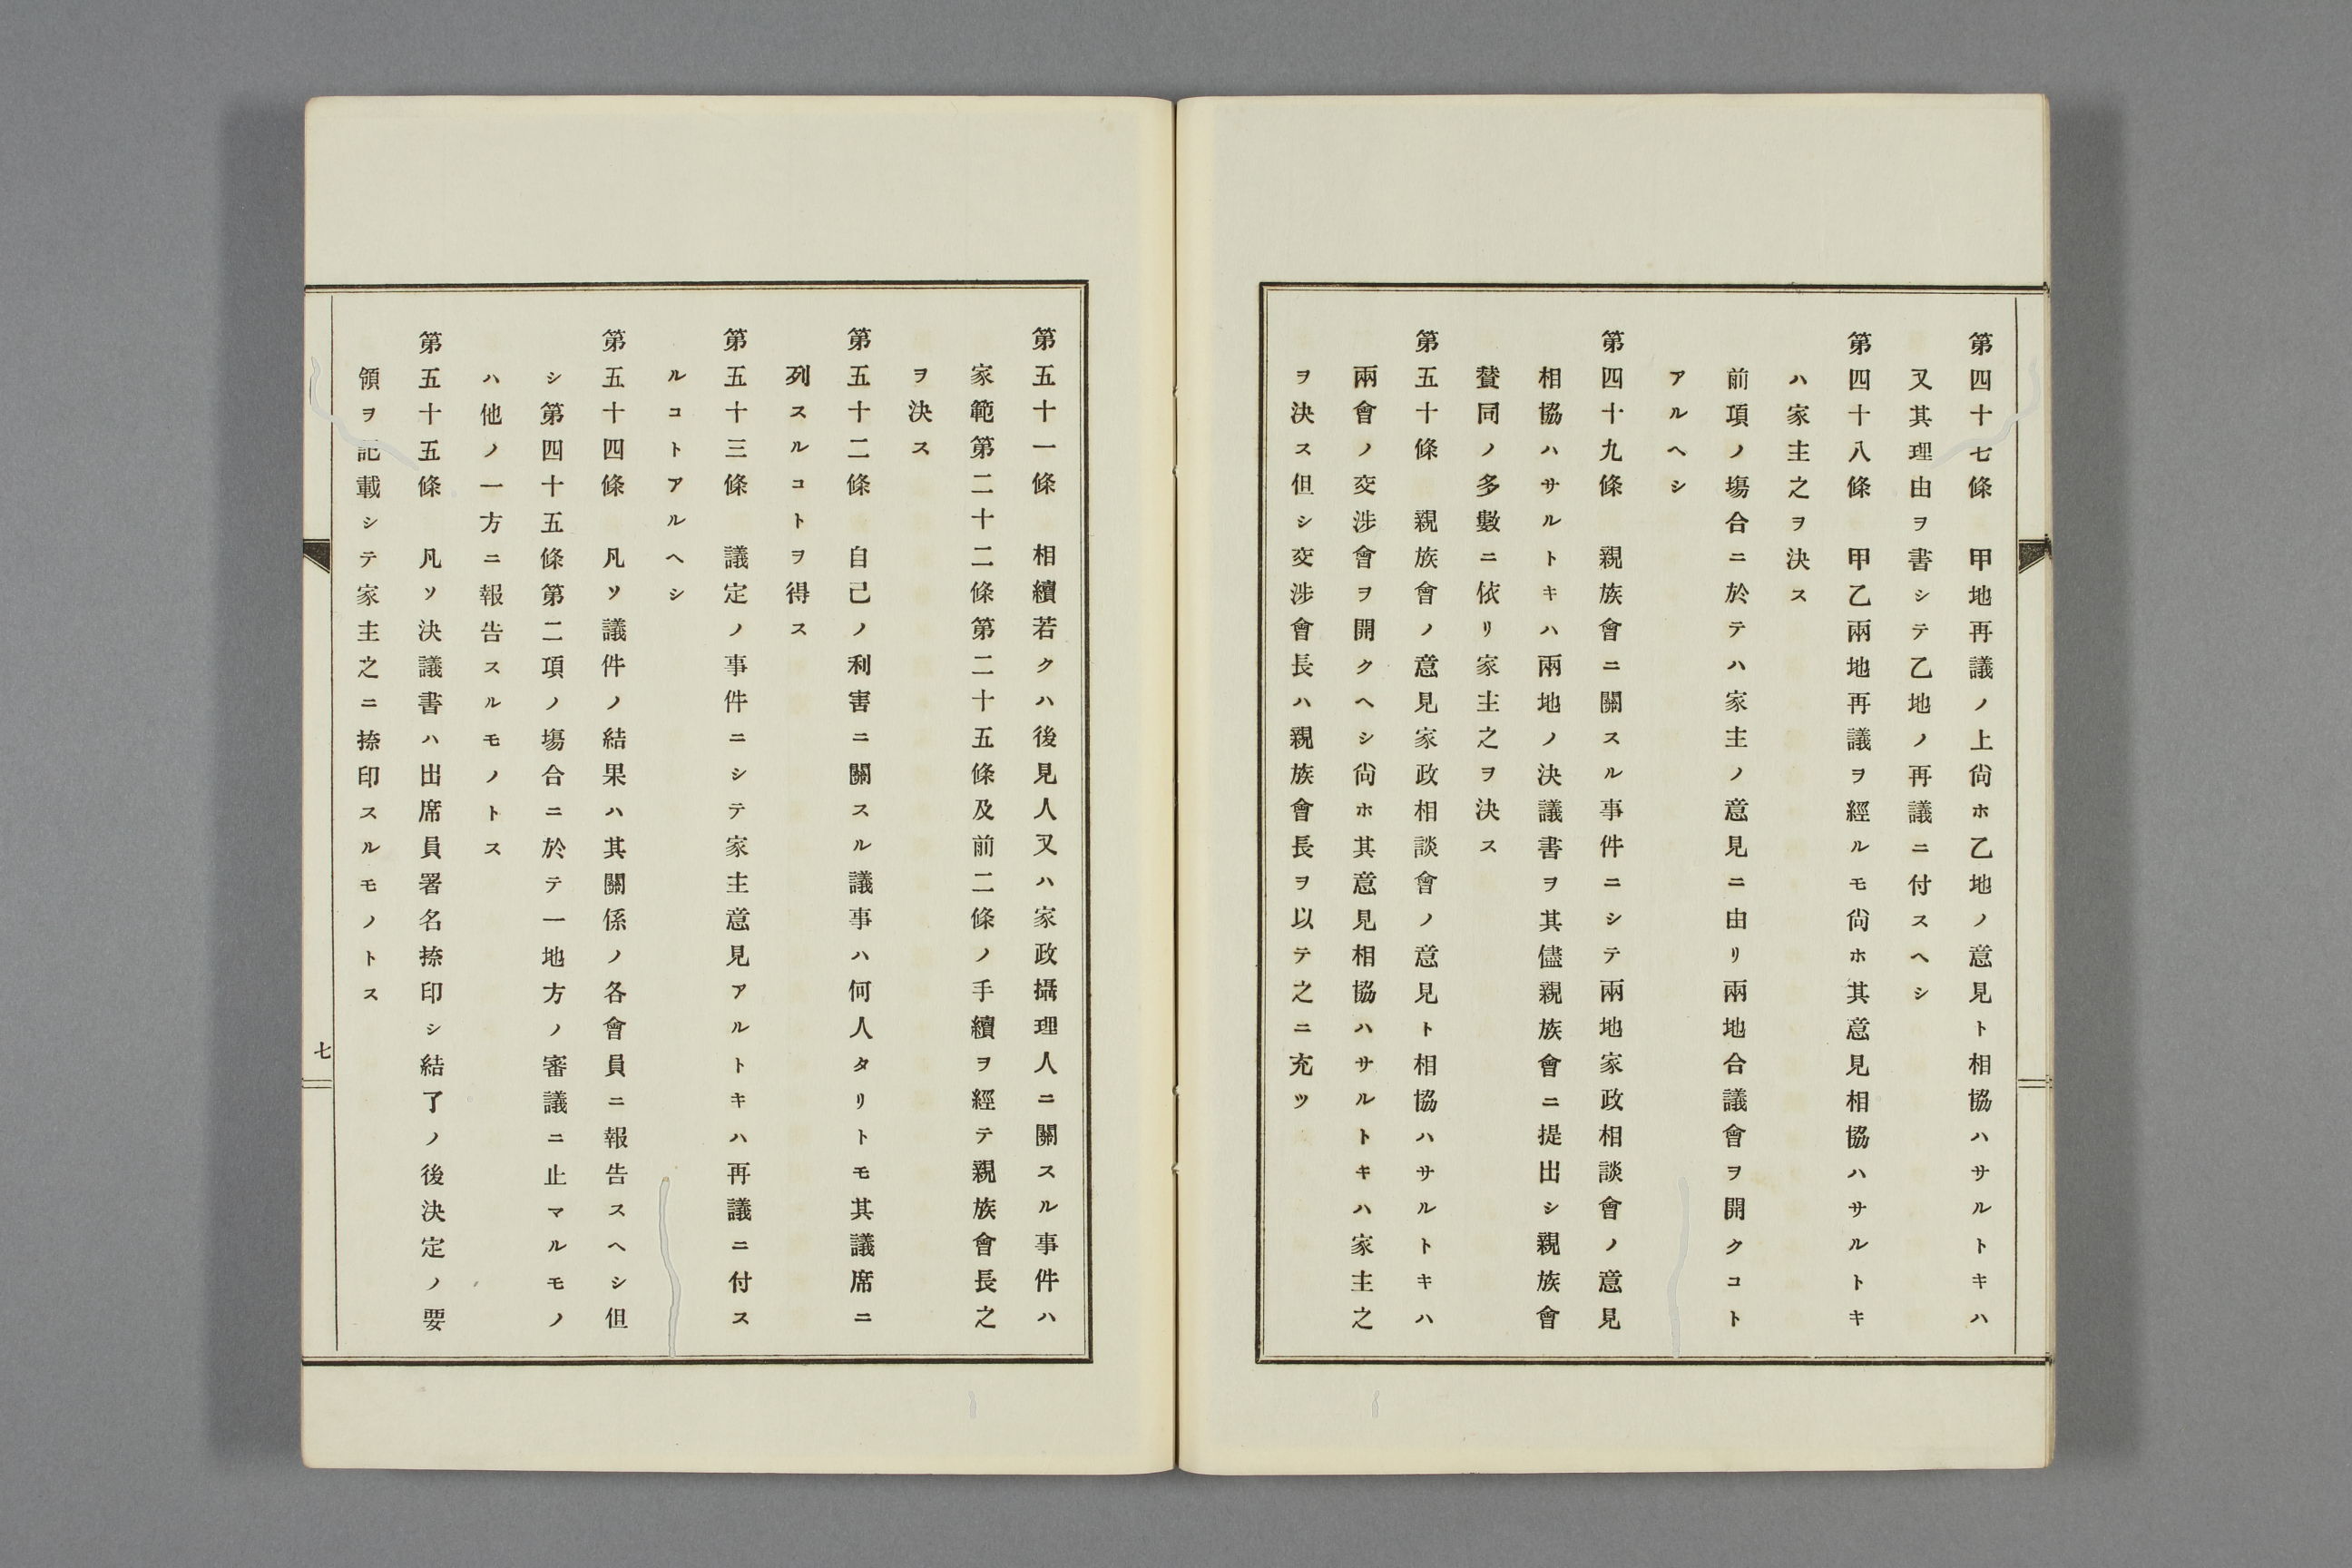 第四十七條　甲地再議ノ上尙ホ乙地ノ意見ト相協ハサルトキハ
又其理由ヲ書シテ乙地ノ再議ニ付スヘシ
第四十八條　甲乙兩地再議ヲ經ルモ尙ホ其意見相協ハサルトキ
ハ家主之ヲ決ス
前項ノ塲合ニ於テハ家主ノ意見ニ由リ兩地合議會ヲ開クコト
アルヘシ
第四十九條　親族會ニ關スル事件ニシテ兩地家政相談會ノ意見
相協ハサルトキハ兩地ノ決議書ヲ其儘親族會ニ提出シ親族會
贊同ノ多數ニ依リ家主之ヲ決ス
第五十條　親族會ノ意見家政相談會ノ意見ト相協ハサルトキハ
兩會ノ交渉會ヲ開クヘシ尙ホ其意見相協ハサルトキハ家主之
ヲ決ス但シ交渉會長ハ親族會長ヲ以テ之ニ充ツ
第五十一條　相續若クハ後見人又ハ家政攝理人ニ關スル事件ハ
家範第二十二條第二十五條及前二條ノ手續ヲ經テ親族會長之
ヲ決ス
第五十二條　自己ノ利害ニ關スル議事ハ何人タリトモ其議席ニ
列スルコトヲ得ス
第五十三條　議定ノ事件ニシテ家主意見アルトキハ再議ニ付ス
ルコトアルヘシ
第五十四條　凡ソ議件ノ結果ハ其關係ノ各會員ニ報告スヘシ但
シ第四十五條第二項ノ塲合ニ於テ一地方ノ審議ニ止マルモノ
ハ他ノ一方ニ報告スルモノトス
第五十五條　凡ソ決議書ハ出席員署名捺印シ結了ノ後決定ノ要
領ヲ記載シテ家主之ニ捺印スルモノトス
七